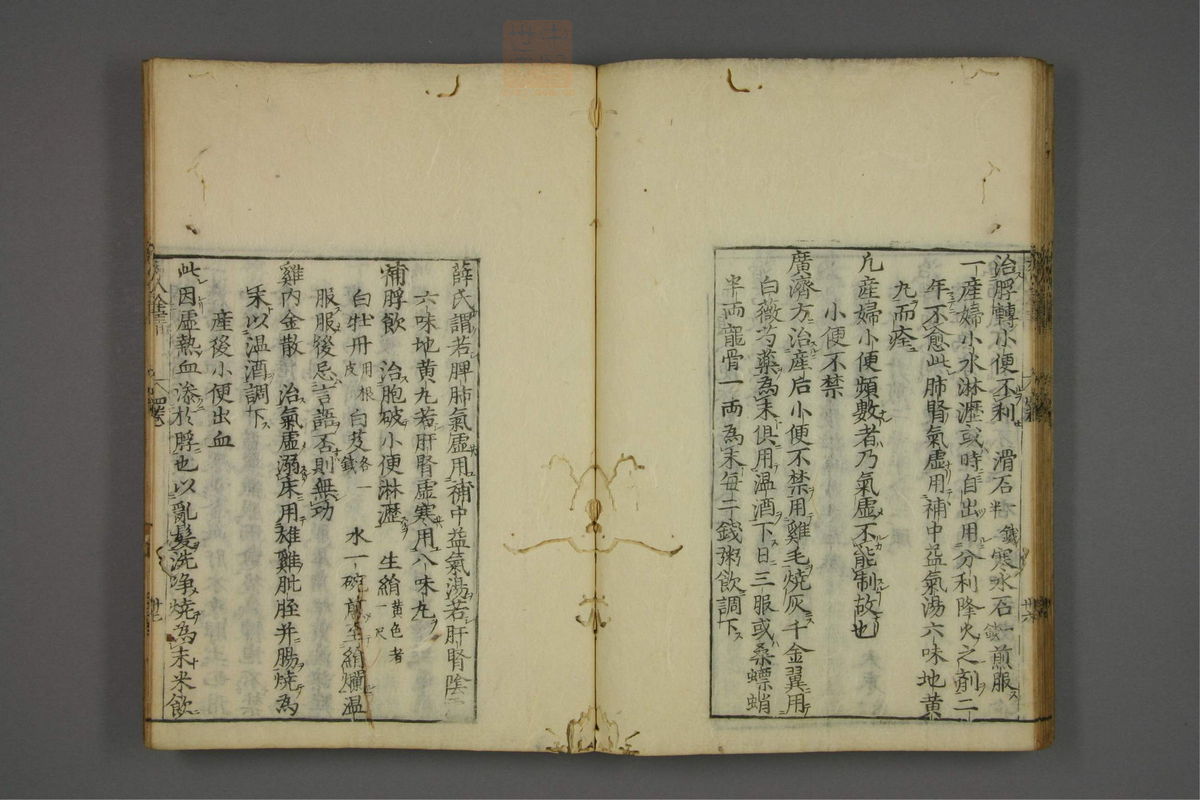 治脬轉小便不利 滑石半錢寒水石一錢煎服
一産婦小水淋瀝或時自出用分利降火之劑二
年不愈此肺腎氣虛用補中益氣湯六味地黄
丸而痊
凡産婦小便頻數者乃氣虛不能制故也
小便不禁
廣濟方治産后小便不禁用雞毛燒灰千金翼用
白薇芍藥為末俱用温酒下日三服或桑螵蛸
半兩龍骨一兩為末每二錢粥飲調下
薛氏謂若脾肺氣虛用補中益氣湯若肝腎陰
六味地黄丸若肝腎虛寒用八味丸
補脬飲 治胞破小便淋瀝 生絹黄色者一尺
白牡丹用根皮 白芨各一錢 水一碗煎生絹爛温
服服後忌言語否則無功
雞内金散 治氣虛溺床用雄雞肶胵并腸燒為
末以温酒調下
産後小便出血
此因虛熱血滲於脬也以亂髮洗浄燒為末米飲